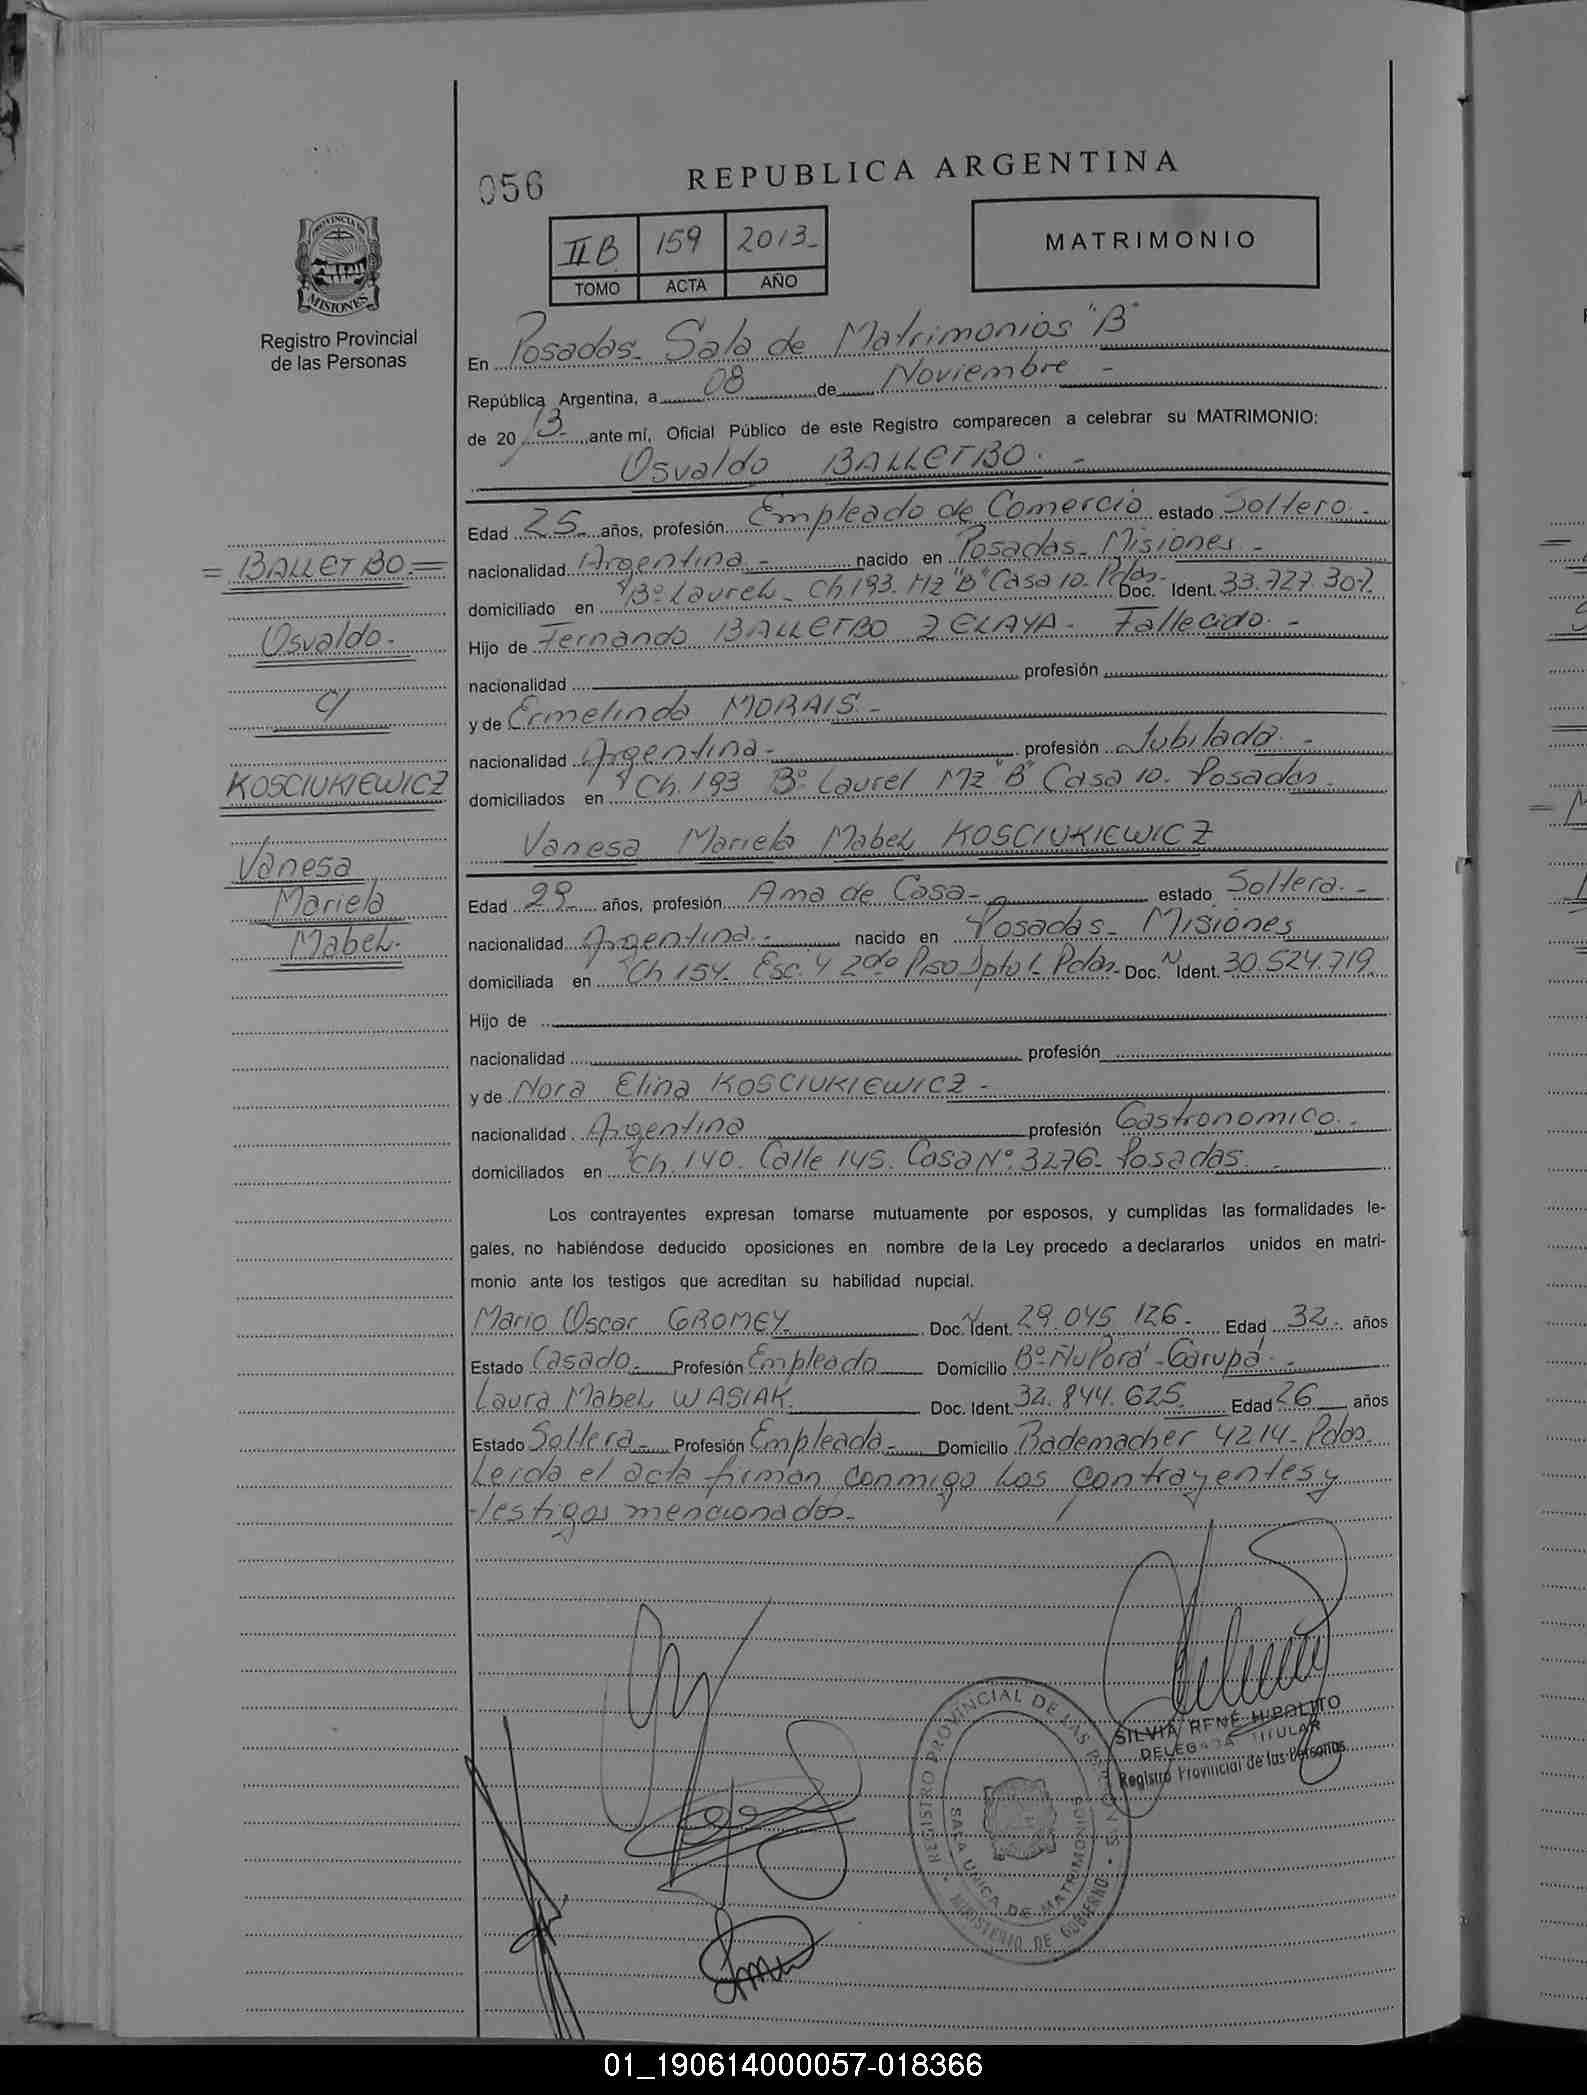 056
REPUBLICA ARGENTINA
PROVINCIA DE
MISIONES
Registro Provincial
de las Personas
II B 159 2013-
TOMO ACTA AÑO
MATRIMONIO
En Posadas- Sala de Matrimonios "B"
República Argentina, a 08 de Noviembre -
de 20 13- ante mí, Oficial Público de este Registro comparecen a celebrar su MATRIMONIO:
Osvaldo BALLETBO. -
Edad 25- años, profesión Empleado de Comercio estado Soltero-
nacionalidad Argentina- nacido en Posadas- Misiones -
domiciliado en Bº Laurel- Ch.193. Mz "B" Casa 10- Pdas- Doc. Ident. 33.727.307.
Hijo de Fernando BALLETBO ZELAYA- Fallecido. -
nacionalidad profesión
y de Ermelinda MORAIS.-
nacionalidad Argentina- profesión Jubilada. -
domiciliados en Ch.193 Bº Laurel Mz "B" Casa 10. Posadas-
Vanesa Mariela Mabel KOSCIUKIEWICZ
Edad 29- años, profesión Ama de Casa- estado Soltera.-
nacionalidad Argentina.- nacido en Posadas- Misiones
domiciliada en Ch 154- Esc. 4 2do Piso Dpto 1- Pdas- Doc. Ident. 30.524.719.
Hijo de
nacionalidad profesión
y de Nora Elina KOSCIUKIEWICZ -
nacionalidad Argentina profesión Gastronomico. -
domiciliados en Ch.140. Calle 145. Casa Nº 3276- Posadas. -
Los contrayentes expresan tomarse mutuamente por esposos, y cumplidas las formalidades le-
gales, no habiéndose deducido oposiciones en nombre de la Ley procedo a declararlos unidos en matri-
monio ante los testigos que acreditan su habilidad nupcial.
Mario Oscar GROMEY- Doc. Ident. 29.045.126- Edad 32- años
Estado Casado- Profesión Empleado Domicilio Bº Ñu Porá - Garupá. -
Laura Mabel WASIAK. Doc. Ident. 32.844.625 Edad 26 años
Estado Soltera- Profesión Empleada- Domicilio Rademacher 4214- Pdas.
Leida el acta firman conmigo los contrayentes y
testigos mencionados-
= BALLETBO =
Osvaldo-
c/
KOSCIUKIEWICZ
Vanesa
Mariela
Mabel-
REGISTRO PROVINCIAL DE LAS PERSONAS
SALA UNICA DE MATRIMONIOS
MINISTERIO DE GOBIERNO
SILVIA RENÉ HIPOLITO
DELEGADA TITULAR
Registro Provincial de las Personas
01_190614000057-018366